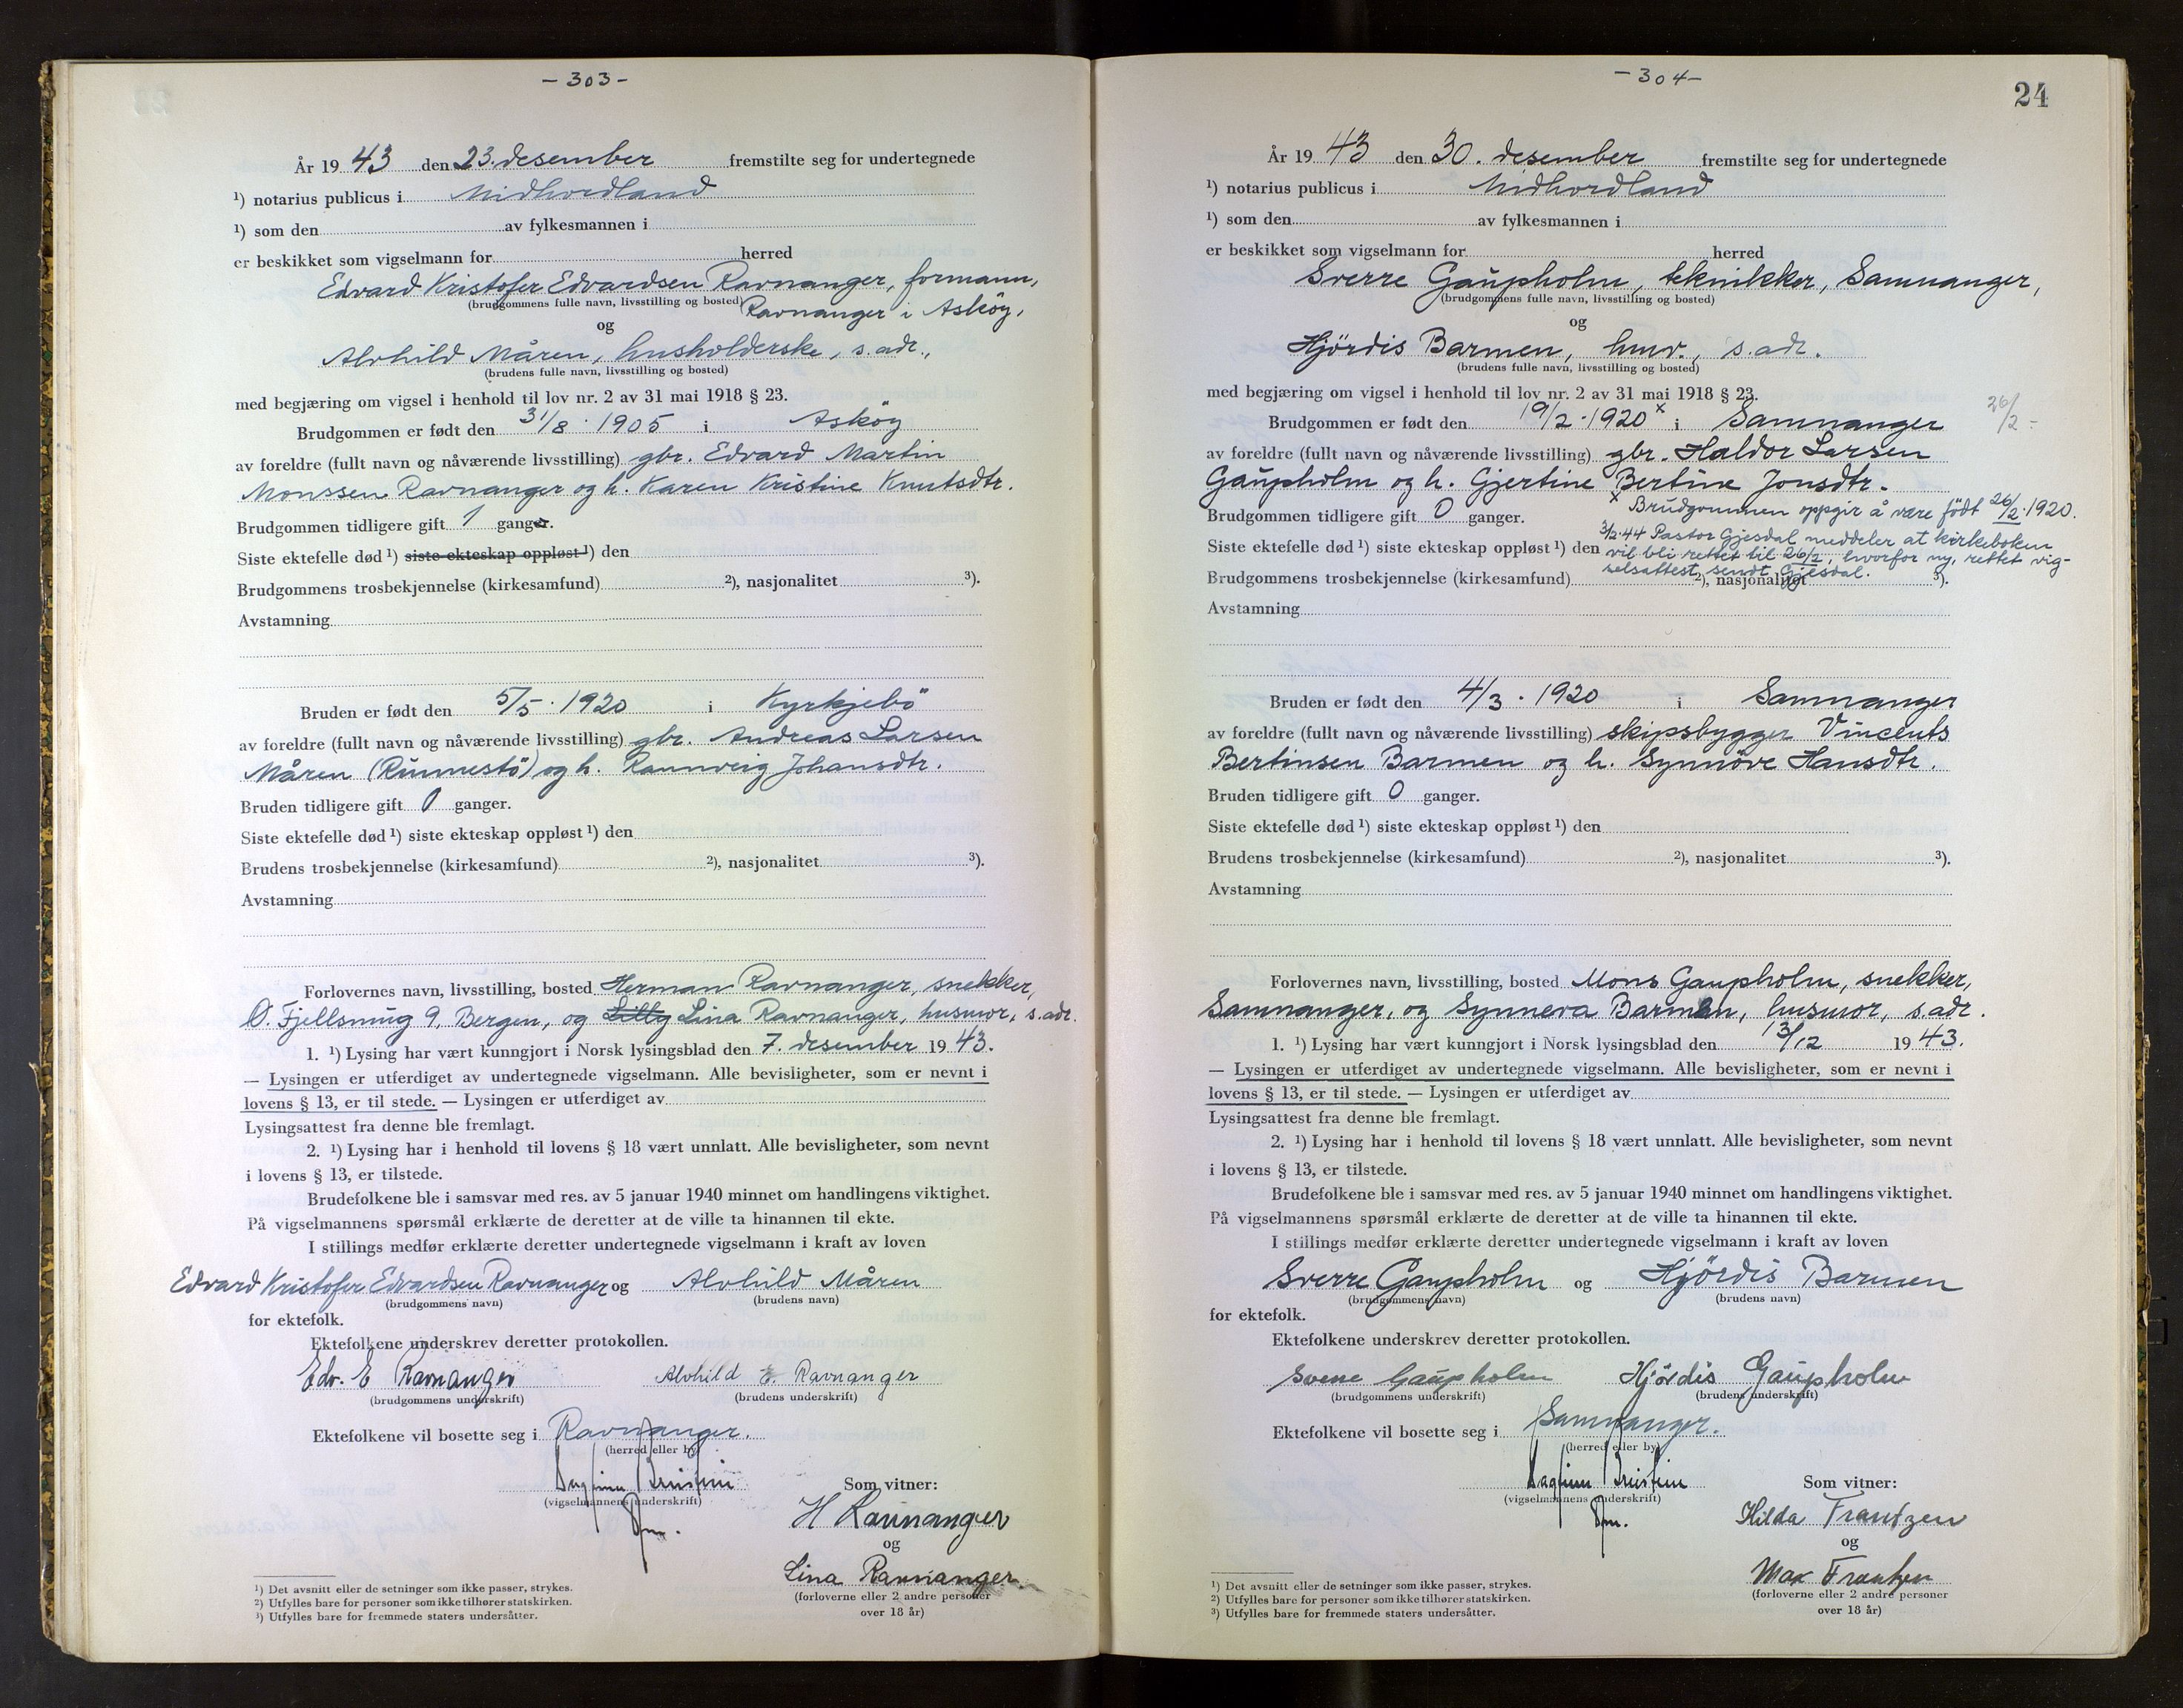 - 303 -
År 19 43 den 23. desember fremstilte seg for undertegnede
¹) notarius publicus i Midhordland
¹) som den av fylkesmannen i
er beskikket som vigselmann for herred
Edvard Kristofer Edvardsen Ravnanger, formann,
(brudgommens fulle navn, livsstilling og bosted) Ravnanger i Asköy,
og
Alvhild Måren, husholderske, s. adr.,
(brudens fulle navn, livsstilling og bosted)
med begjæring om vigsel i henhold til lov nr. 2 av 31 mai 1918 § 23.
Brudgommen er født den 31/8. 1905 i Asköy
av foreldre (fullt navn og nåværende livsstilling) gbr. Edvard Martin
Monssen Ravnanger og h. Karen Kristine Knutsdtr.
Brudgommen tidligere gift 1 ganger.
Siste ektefelle død ¹) siste ekteskap oppløst ¹) den
Brudgommens trosbekjennelse (kirkesamfund) ²), nasjonalitet ³).
Avstamning
Bruden er født den 5/5. 1920 i Kyrkjebö
av foreldre (fullt navn og nåværende livsstilling) gbr. Andreas Larsen
Måren (Rinnestö) og h. Rannveig Johansdtr.
Bruden tidligere gift 0 ganger.
Siste ektefelle død ¹) siste ekteskap oppløst ¹) den
Brudens trosbekjennelse (kirkesamfund) ²), nasjonalitet ³).
Avstamning
Forlovernes navn, livsstilling, bosted Herman Ravnanger, snekker,
Ö. Fjellsmug 9, Bergen, og Lilly Lina Ravnanger, husmor, s. adr.
1. ¹) Lysing har vært kunngjort i Norsk lysingsblad den 7. desember 19 43.
— Lysingen er utferdiget av undertegnede vigselmann. Alle bevisligheter, som er nevnt i
lovens § 13, er til stede. — Lysingen er utferdiget av
Lysingsattest fra denne ble fremlagt.
2. ¹) Lysing har i henhold til lovens § 18 vært unnlatt. Alle bevisligheter, som nevnt
i lovens § 13, er tilstede.
Brudefolkene ble i samsvar med res. av 5 januar 1940 minnet om handlingens viktighet.
På vigselmannens spørsmål erklærte de deretter at de ville ta hinannen til ekte.
I stillings medfør erklærte deretter undertegnede vigselmann i kraft av loven
Edvard Kristofer Edvardsen Ravnanger og Alvhild Måren
(brudgommens navn) (brudens navn)
for ektefolk.
Ektefolkene underskrev deretter protokollen.
Edv. E Ravnanger Alvhild E. Ravnanger
(brudgommens underskrift) (brudens underskrift)
Ektefolkene vil bosette seg i Ravnanger.
(herred eller by)
Som vitner:
(vigselmannens underskrift)
H Ravnanger
og
Lina Ravnanger
(forloverne eller 2 andre personer
over 18 år)
¹) Det avsnitt eller de setninger som ikke passer, strykes.
²) Utfylles bare for personer som ikke tilhører statskirken.
³) Utfylles bare for fremmede staters undersåtter.
- 304 -
24
År 19 43 den 30. desember fremstilte seg for undertegnede
¹) notarius publicus i Midhordland
¹) som den av fylkesmannen i
er beskikket som vigselmann for herred
Sverre Gaupholm, teknikker, Samnanger,
(brudgommens fulle navn, livsstilling og bosted)
og
Hjördis Barmen, hmv., s. adr.
(brudens fulle navn, livsstilling og bosted)
med begjæring om vigsel i henhold til lov nr. 2 av 31 mai 1918 § 23.
Brudgommen er født den 19/2. 1920 x i Samnanger 26/2 -
av foreldre (fullt navn og nåværende livsstilling) gbr. Haldor Larsen
Gaupholm og h. Gjertine Bertine Jonsdtr.
x Brudgommen oppgir å være födt 26/2. 1920.
Brudgommen tidligere gift 0 ganger.
3/2.44 Pastor Gjesdal meddeler at kirkeboken
Siste ektefelle død ¹) siste ekteskap oppløst ¹) den vil bli rettet til 26/2, hvorfor ny, rettet vig-
selsattest sendt Gjesdal.
Brudgommens trosbekjennelse (kirkesamfund) ²), nasjonalitet ³).
Avstamning
Bruden er født den 4/3. 1920 i Samnanger
av foreldre (fullt navn og nåværende livsstilling) skipsbygger Vincents
Bertinsen Barmen og h. Synnöve Hansdtr.
Bruden tidligere gift 0 ganger.
Siste ektefelle død ¹) siste ekteskap oppløst ¹) den
Brudens trosbekjennelse (kirkesamfund) ²), nasjonalitet ³).
Avstamning
Forlovernes navn, livsstilling, bosted Mons Gaupholm, snekker,
Samnanger, og Synneva Barmen, husmor, s. adr.
1. ¹) Lysing har vært kunngjort i Norsk lysingsblad den 13/12 19 43.
— Lysingen er utferdiget av undertegnede vigselmann. Alle bevisligheter, som er nevnt i
lovens § 13, er til stede. — Lysingen er utferdiget av
Lysingsattest fra denne ble fremlagt.
2. ¹) Lysing har i henhold til lovens § 18 vært unnlatt. Alle bevisligheter, som nevnt
i lovens § 13, er tilstede.
Brudefolkene ble i samsvar med res. av 5 januar 1940 minnet om handlingens viktighet.
På vigselmannens spørsmål erklærte de deretter at de ville ta hinannen til ekte.
I stillings medfør erklærte deretter undertegnede vigselmann i kraft av loven
Sverre Gaupholm og Hjördis Barmen
(brudgommens navn) (brudens navn)
for ektefolk.
Ektefolkene underskrev deretter protokollen.
Sverre Gaupholm Hjördis Gaupholm
(brudgommens underskrift) (brudens underskrift)
Ektefolkene vil bosette seg i Samnanger.
(herred eller by)
Som vitner:
(vigselmannens underskrift)
Hilda Frantzen
og
Max Frantzen
(forloverne eller 2 andre personer
over 18 år)
¹) Det avsnitt eller de setninger som ikke passer, strykes.
²) Utfylles bare for personer som ikke tilhører statskirken.
³) Utfylles bare for fremmede staters undersåtter.